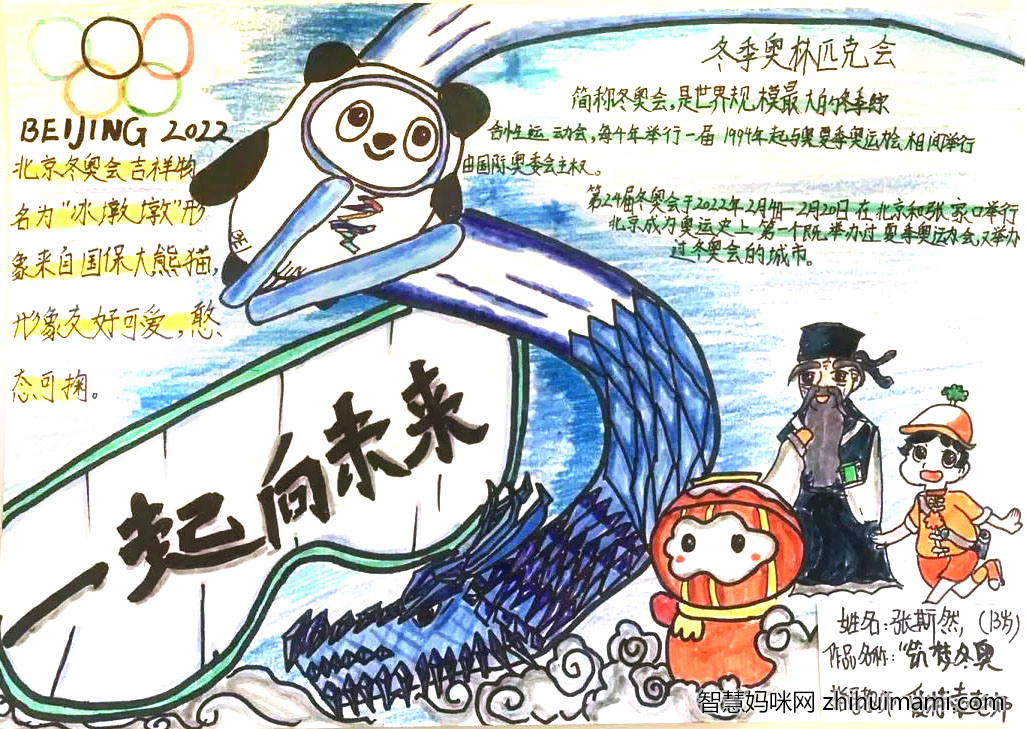 BEIJING 2022
北京冬奥会吉祥物
名为"冰墩墩"形
象来自国保大熊猫,
形象友好可爱,憨
态可掬。
冬季奥林匹克会
简称冬奥会,是世界规模最大的冬季综
合性运动会,每4年举行一届 1994年起与奥夏季奥运会相间举行
由国际奥委会主权。
第24届冬奥会于2022年2月4日—2月20日在北京和张家口举行
北京成为奥运史上第一个既举办过夏季奥运会,又举办
过冬奥会的城市。
一起向未来
姓名:张斯然,(13岁)
作品名称:"筑梦冬奥
智慧妈咪网 zhihuimami.com